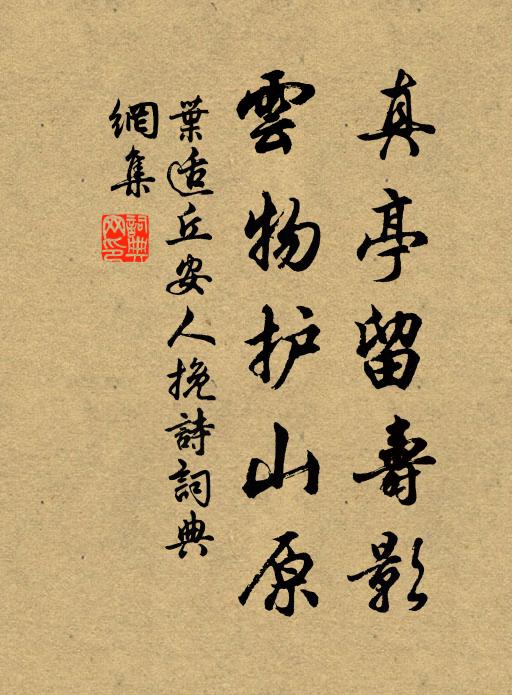 真亭留壽影
雲物护山原
葉适丘安人挽詩詞典
網集
詞典
网印